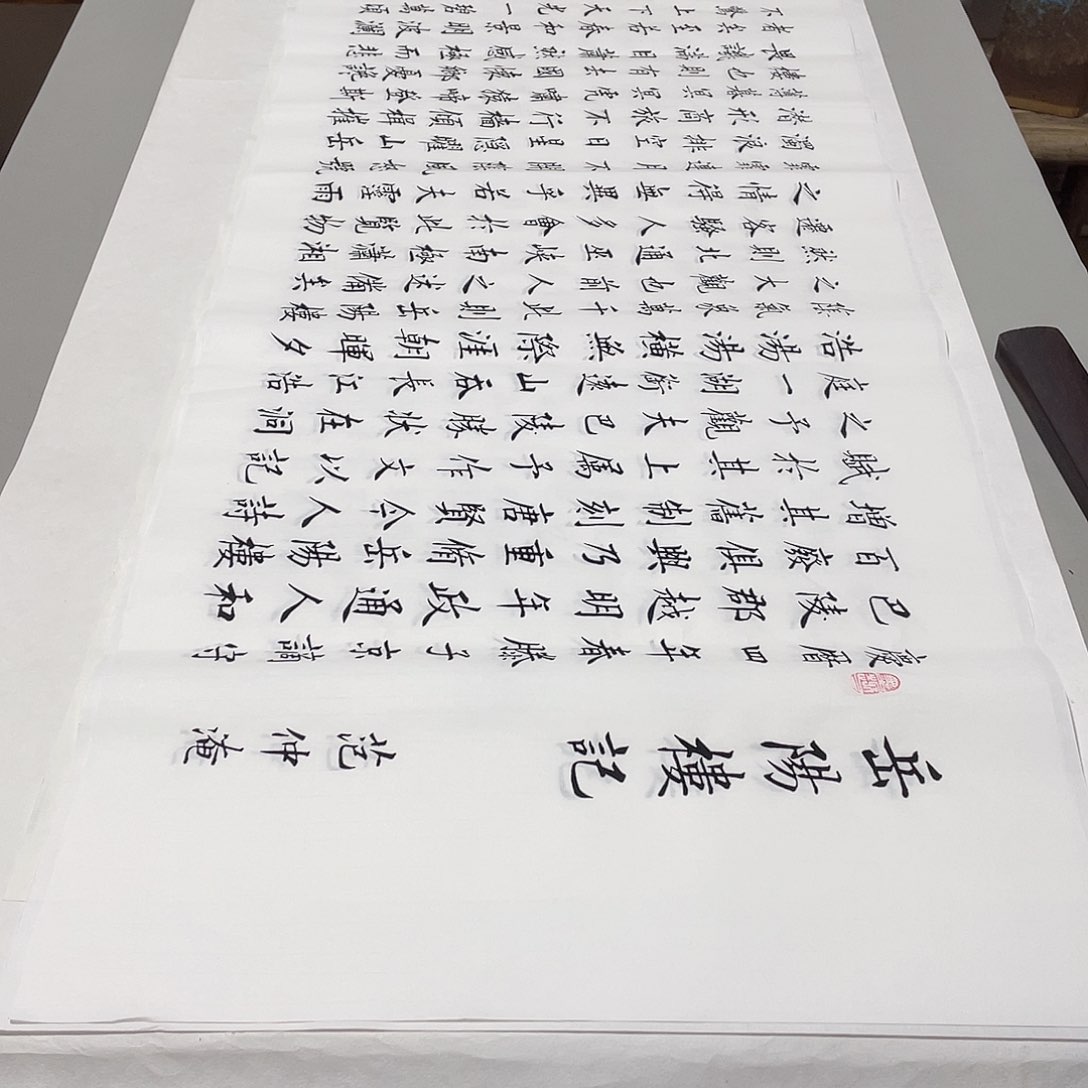 岳陽樓記 范仲淹
慶曆四年春滕子京謫守
巴陵郡越明年政通人和
百廢俱興乃重脩岳陽樓
增其舊制刻唐賢今人詩
賦於其上属予作文以記
之予觀夫巴陵勝狀在洞
庭一湖銜遠山吞長江浩
浩湯湯橫無際涯朝暉夕
陰氣象萬千此則岳陽樓
之大觀也前人之述備矣
然則北通巫峽南極瀟湘
遷客騷人多會於此覽物
之情得無異乎若夫霪雨
霏霏連月不開陰風怒號
濁浪排空日星隱耀山岳
潛形商旅不行檣傾楫摧
薄暮冥冥虎嘯猿啼登斯
樓也則有去國懷鄉憂讒
畏譏滿目蕭然感極而悲
者矣至若春和景明波瀾
不驚上下天光一碧萬頃